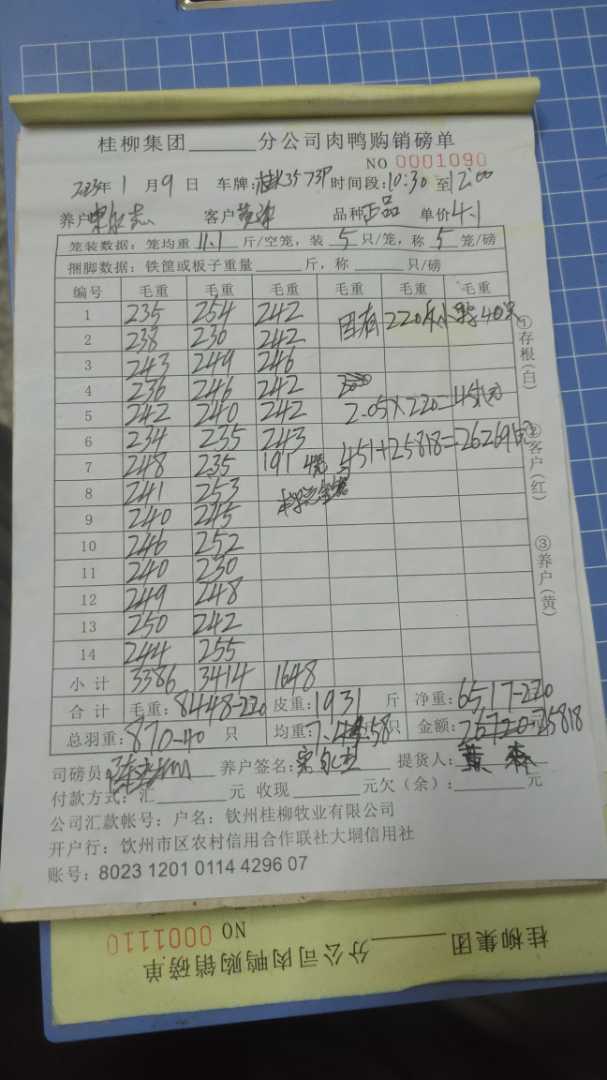 桂柳集团______分公司肉鸭购销磅单
NO 0001090
2023年1月9日 车牌: 时间段:10:30至12:00
养户 客户黄森 品种正品 单价4.1
笼装数据:笼均重11.1斤/空笼,装5只/笼,称5笼/磅
捆脚数据:铁筐或板子重量______斤,称______只/磅
编号 毛重 毛重 毛重 毛重 毛重 毛重
1 235 254 242
2 238 230 242 220斤 40只
3 243 249 246
4 236 246 242
5 242 240 242 2.05×220=451
6 234 235 243
7 248 235 191 4笼 451+25818=26269
8 241 253
9 240 245
10 246 252
11 240 230
12 249 248
13 250 242
14 244 255
小计 3386 3414 1648
合计 毛重:8448-220 皮重:1931斤 净重:6517-220
总羽重:870-40只 均重:7.58只 金额:26720-25818
司磅员 养户签名: 提货人:黄森
付款方式:汇______元 收现______元欠(余):______元
公司汇款帐号:户名:钦州桂柳牧业有限公司
开户行:钦州市区农村信用合作联社大垌信用社
账号:8023 1201 0114 4296 07
①存根(白)
②客户(红)
③养户(黄)
NO 0001110
桂柳集团______分公司肉鸭购销磅单